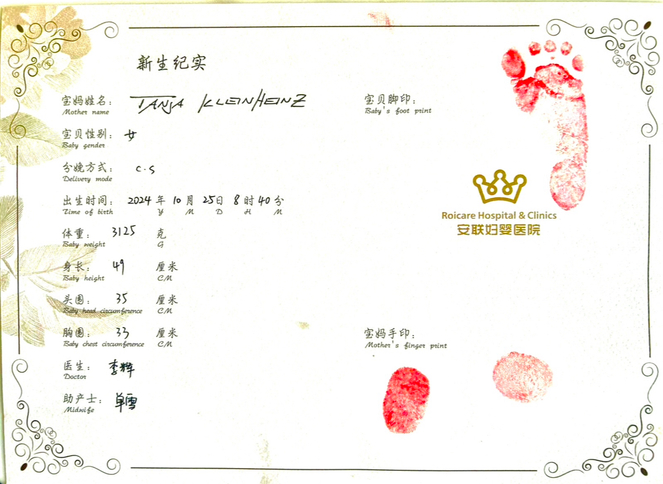 新生纪实
宝妈姓名： TANJA KLEINHEINZ
Mother name
宝贝性别： 女
Baby gender
分娩方式： C.S
Delivery mode
出生时间： 2024 年 10 月 25 日 8 时 40 分
Time of birth Y M D H M
体重： 3125 克
Baby weight G
身长： 49 厘米
Baby height CM
头围： 35 厘米
Baby head circumference CM
胸围： 33 厘米
Baby chest circumference CM
医生： 李辉
Doctor
助产士： 单雪
Midwife
宝贝脚印：
Baby's foot print
Roicare Hospital & Clinics
安联妇婴医院
宝妈手印：
Mother's finger print